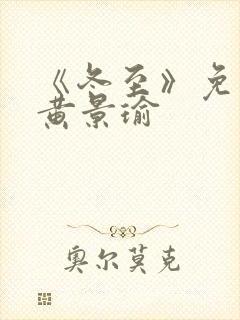 《冬至》免
黄景瑜
奥尔莫克